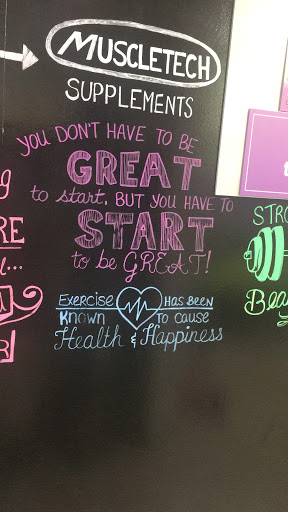 MUSCLETECH
SUPPLEMENTS
YOU DON'T HAVE TO BE
GREAT
to start, BUT YOU HAVE TO
START
to be GREAT!
Exercise HAS BEEN
Known TO CAUSE
Health & Happiness
STRO
Bea
RE